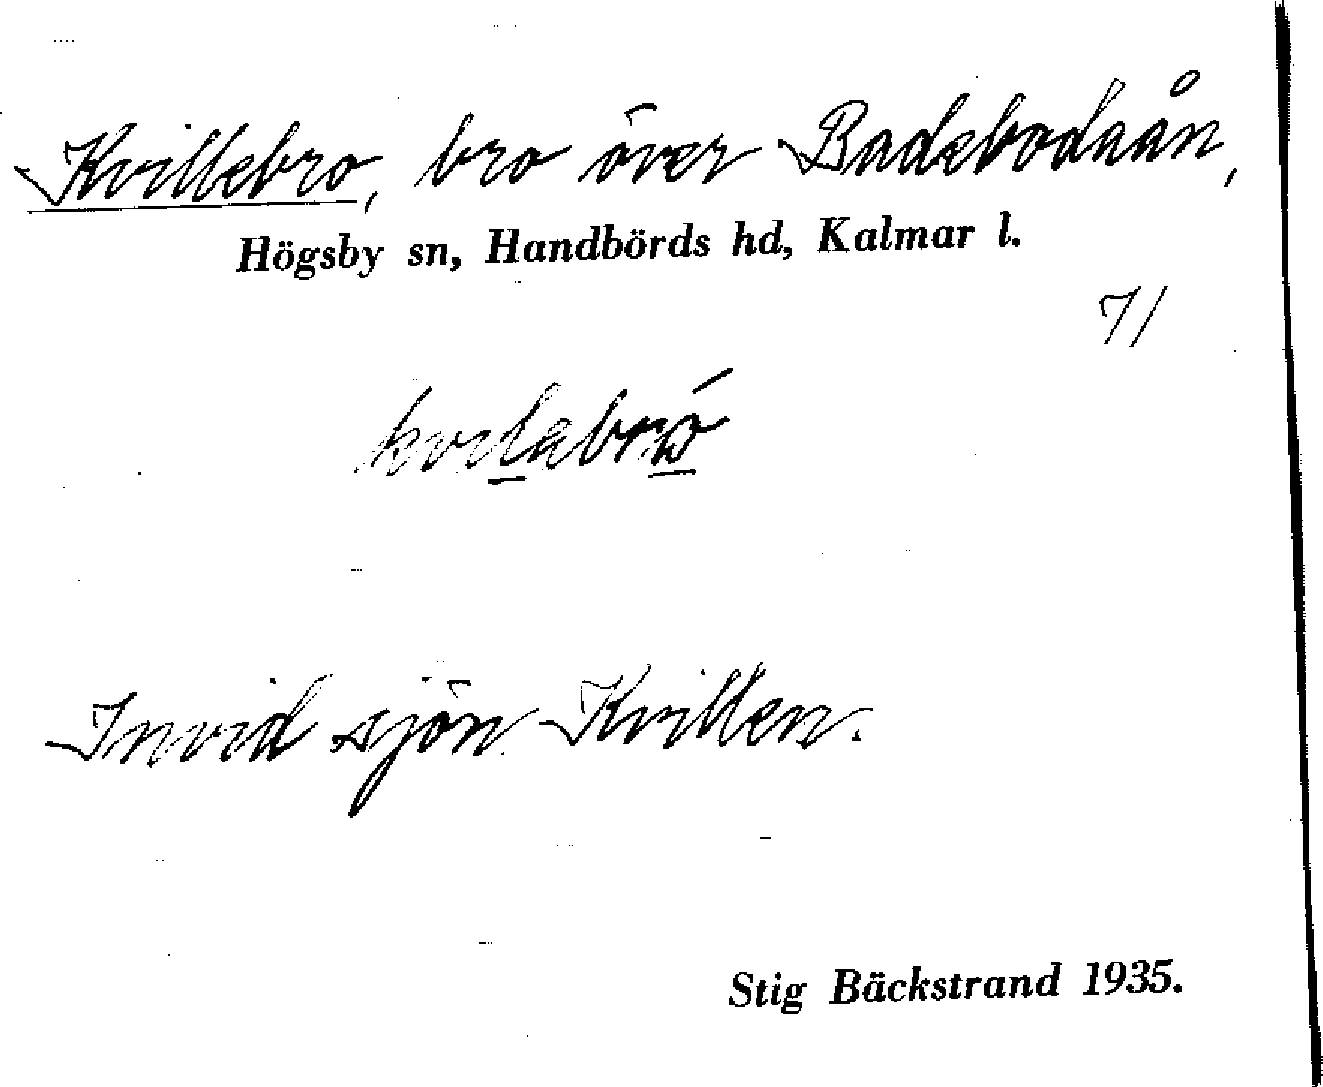 Kvillebro, bro över Badebodaån,
Högsby sn, Handbörds hd, Kalmar l.
7/
kvilabró
Invid sjön Kvillen.
Stig Bäckstrand 1935.